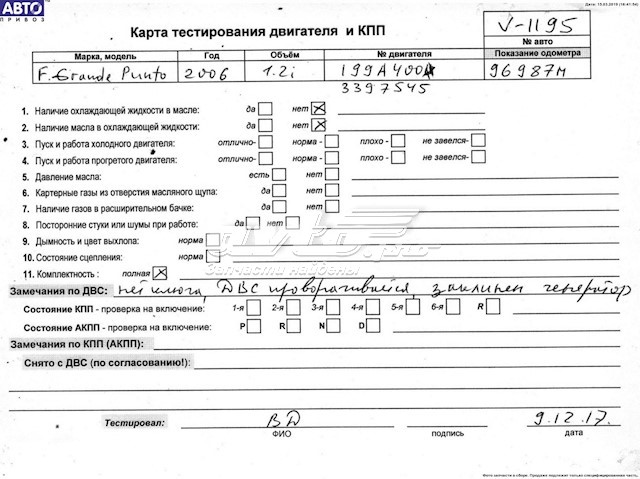 АВТО
ПРИВОЗ
Дата: 15.03.2019 (16:41:54)
Карта тестирования двигателя и КПП
V-1195
№ авто
Марка, модель Год Объём № двигателя Показание одометра
F. Grande Punto 2006 1.2i 199A4000 96987м
3397545
1. Наличие охлаждающей жидкости в масле: да нет
2. Наличие масла в охлаждающей жидкости: да нет
3. Пуск и работа холодного двигателя: отлично- норма - плохо - не завелся-
4. Пуск и работа прогретого двигателя: отлично- норма - плохо - не завелся-
5. Давление масла: есть нет
6. Картерные газы из отверстия масляного щупа: да нет
7. Наличие газов в расширительном бачке: да нет
8. Посторонние стуки или шумы при работе: да нет
9. Дымность и цвет выхлопа: норма
10. Состояние сцепления: норма
11. Комплектность : полная
АВТО.pro
Запчасти найдены
Замечания по ДВС: нет ключа, ДВС проворачивается, заклинен генератор
Состояние КПП - проверка на включение: 1-я 2-я 3-я 4-я 5-я 6-я R
Состояние АКПП - проверка на включение: P R N D
Замечания по КПП (АКПП):
Снято с ДВС (по согласованию!):
Тестировал: ВД 9.12.17.
ФИО подпись дата
Фото запчасти в сборе. Продаже подлежит только специфицированная часть.